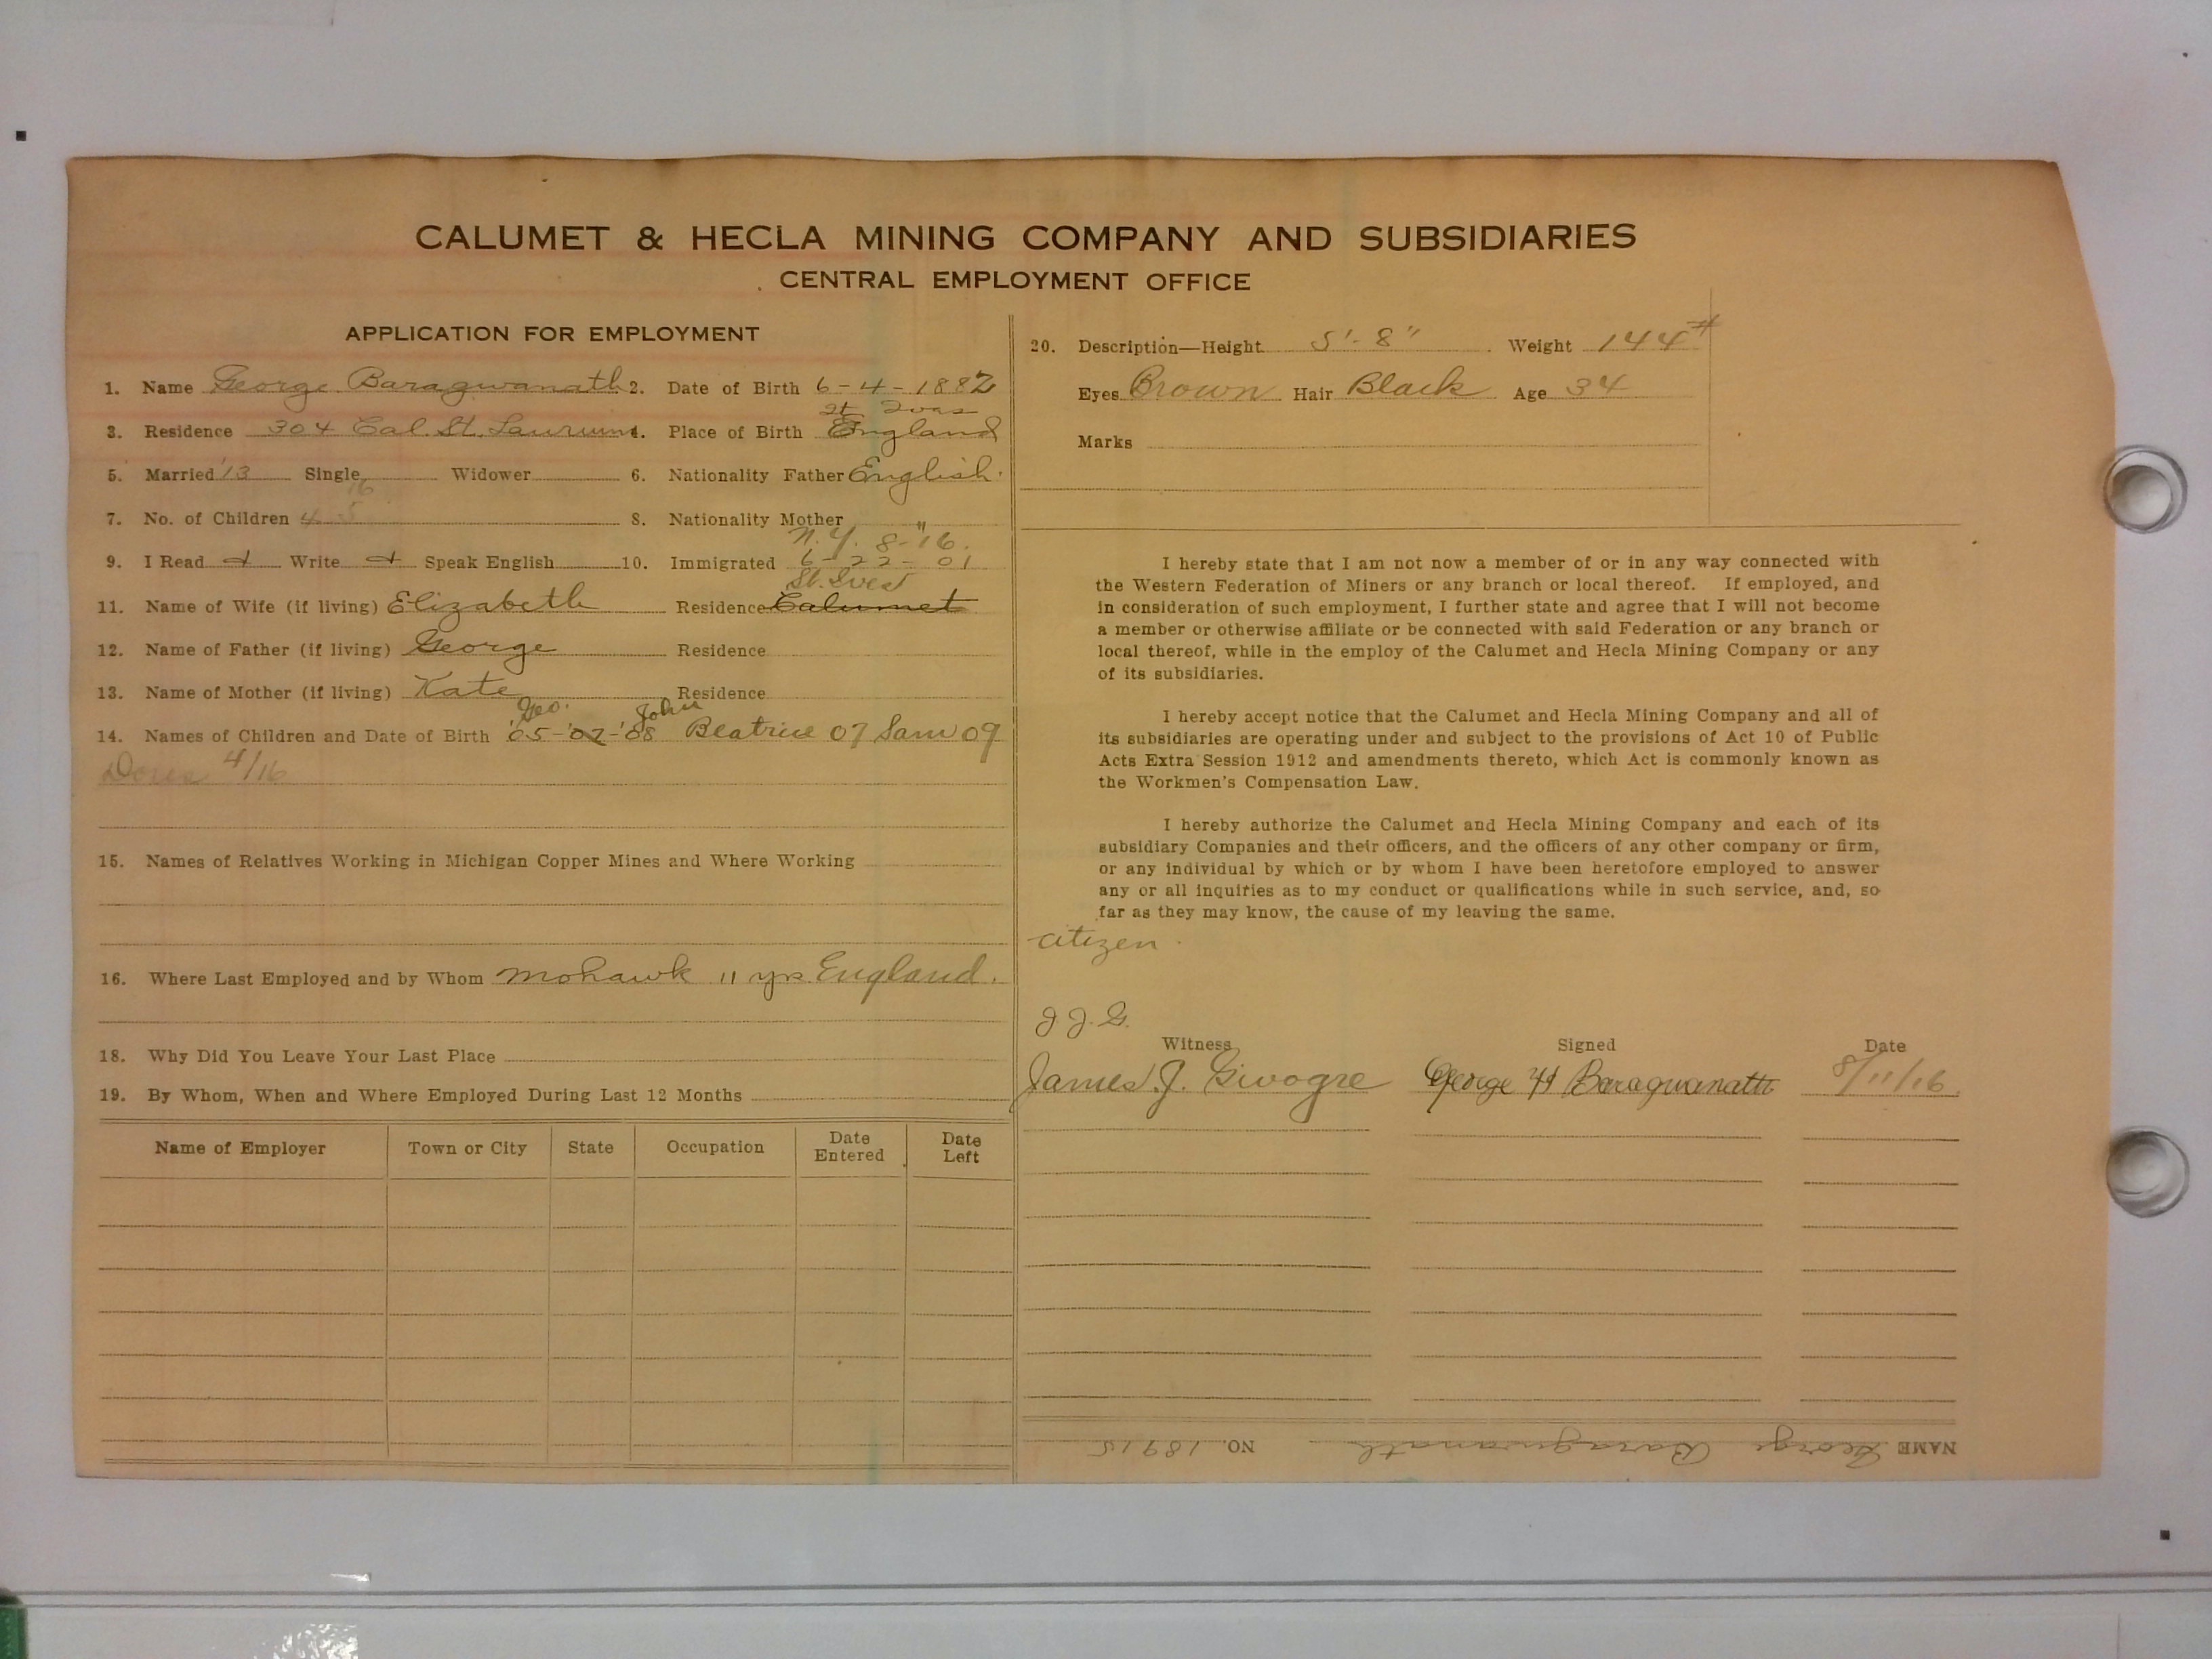 CALUMET & HECLA MINING COMPANY AND SUBSIDIARIES
CENTRAL EMPLOYMENT OFFICE
APPLICATION FOR EMPLOYMENT
1. Name George Baragwanath 2. Date of Birth 6-4-1882
St Ives
3. Residence 304 Cal. St. Laurium 4. Place of Birth England
5. Married '13 Single Widower 6. Nationality Father English.
16
7. No. of Children 4 5 8. Nationality Mother "
N.Y. 8-'16.
9. I Read & Write & Speak English 10. Immigrated 6-22-01
St. Ives
11. Name of Wife (if living) Elizabeth Residence Calumet
12. Name of Father (if living) George Residence
13. Name of Mother (if living) Kate Residence
Geo. John
14. Names of Children and Date of Birth '05-'07-'08 Beatrice 07 Sam 09
Doris 4/16
15. Names of Relatives Working in Michigan Copper Mines and Where Working
16. Where Last Employed and by Whom Mohawk 11 yrs England.
18. Why Did You Leave Your Last Place
19. By Whom, When and Where Employed During Last 12 Months
Name of Employer Town or City State Occupation Date Entered Date Left
20. Description—Height 5'-8" Weight 144#
Eyes Brown Hair Black Age 34
Marks
I hereby state that I am not now a member of or in any way connected with
the Western Federation of Miners or any branch or local thereof. If employed, and
in consideration of such employment, I further state and agree that I will not become
a member or otherwise affiliate or be connected with said Federation or any branch or
local thereof, while in the employ of the Calumet and Hecla Mining Company or any
of its subsidiaries.
I hereby accept notice that the Calumet and Hecla Mining Company and all of
its subsidiaries are operating under and subject to the provisions of Act 10 of Public
Acts Extra Session 1912 and amendments thereto, which Act is commonly known as
the Workmen's Compensation Law.
I hereby authorize the Calumet and Hecla Mining Company and each of its
subsidiary Companies and their officers, and the officers of any other company or firm,
or any individual by which or by whom I have been heretofore employed to answer
any or all inquiries as to my conduct or qualifications while in such service, and, so
far as they may know, the cause of my leaving the same.
citizen.
J.J.G.
Witness Signed Date
James J. George H Baragwanath 8/11/16
NAME George Baragwanath NO. 18915